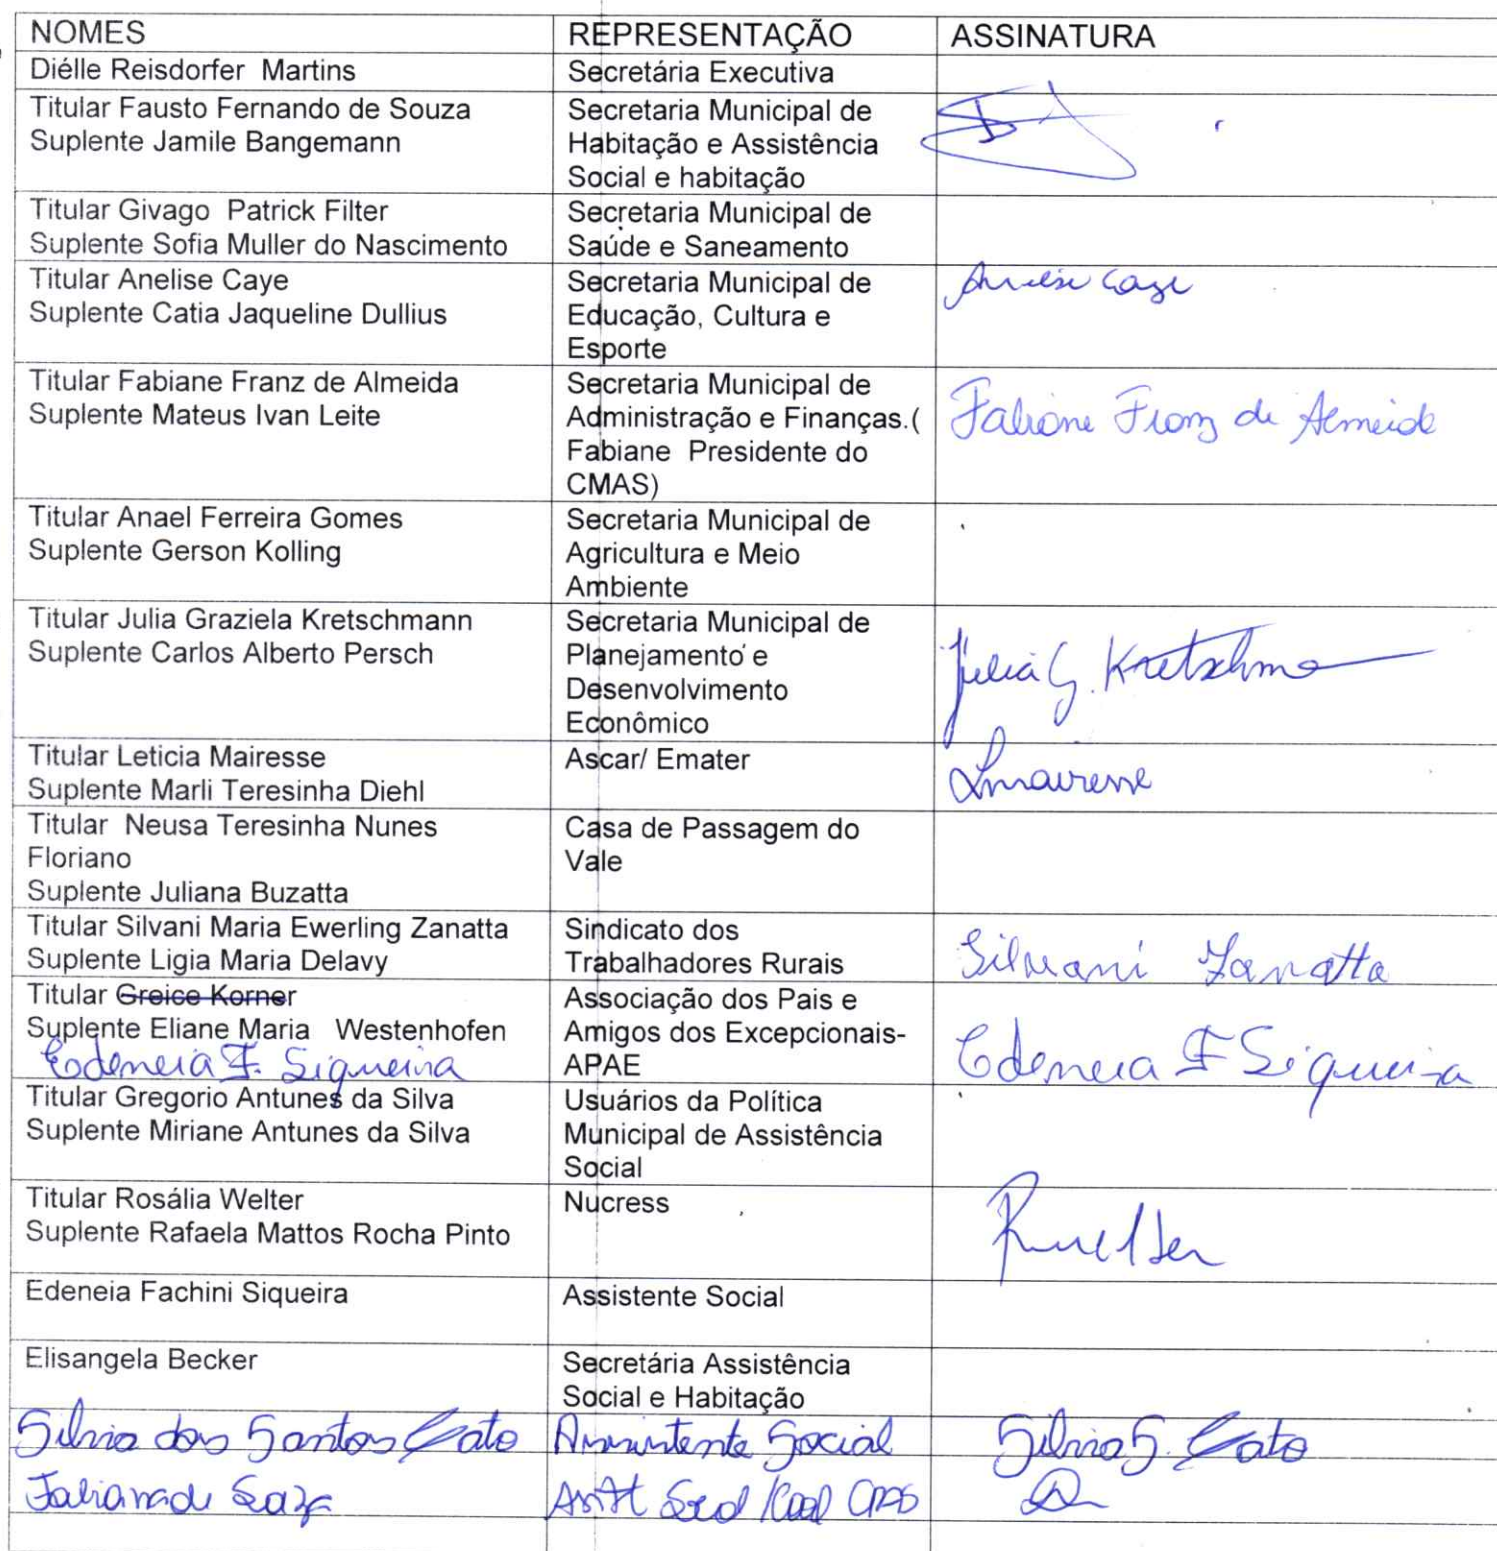 NOMES REPRESENTAÇÃO ASSINATURA
Diélle Reisdorfer Martins Secretária Executiva
Titular Fausto Fernando de Souza
Suplente Jamile Bangemann
Secretaria Municipal de
Habitação e Assistência
Social e habitação
Titular Givago Patrick Filter
Suplente Sofia Muller do Nascimento
Secretaria Municipal de
Saúde e Saneamento
Titular Anelise Caye
Suplente Catia Jaqueline Dullius
Secretaria Municipal de
Educação, Cultura e
Esporte
Anelise Caye
Titular Fabiane Franz de Almeida
Suplente Mateus Ivan Leite
Secretaria Municipal de
Administração e Finanças.(
Fabiane Presidente do
CMAS)
Fabiane Franz de Almeida
Titular Anael Ferreira Gomes
Suplente Gerson Kolling
Secretaria Municipal de
Agricultura e Meio
Ambiente
Titular Julia Graziela Kretschmann
Suplente Carlos Alberto Persch
Secretaria Municipal de
Planejamento e
Desenvolvimento
Econômico
Julia G. Kretschma
Titular Leticia Mairesse
Suplente Marli Teresinha Diehl
Ascar/ Emater
Lmairesse
Titular Neusa Teresinha Nunes
Floriano
Suplente Juliana Buzatta
Casa de Passagem do
Vale
Titular Silvani Maria Ewerling Zanatta
Suplente Ligia Maria Delavy
Sindicato dos
Trabalhadores Rurais
Silvani Zanatta
Titular Greice Korner
Suplente Eliane Maria Westenhofen
Edeneia F. Siqueira
Associação dos Pais e
Amigos dos Excepcionais-
APAE
Edeneia F Siqueira
Titular Gregorio Antunes da Silva
Suplente Miriane Antunes da Silva
Usuários da Política
Municipal de Assistência
Social
Titular Rosália Welter
Suplente Rafaela Mattos Rocha Pinto
Nucress
RWelter
Edeneia Fachini Siqueira Assistente Social
Elisangela Becker
Secretária Assistência
Social e Habitação
Silvia dos Santos Cato Assistente Social Silvia S. Cato
Fabiana de